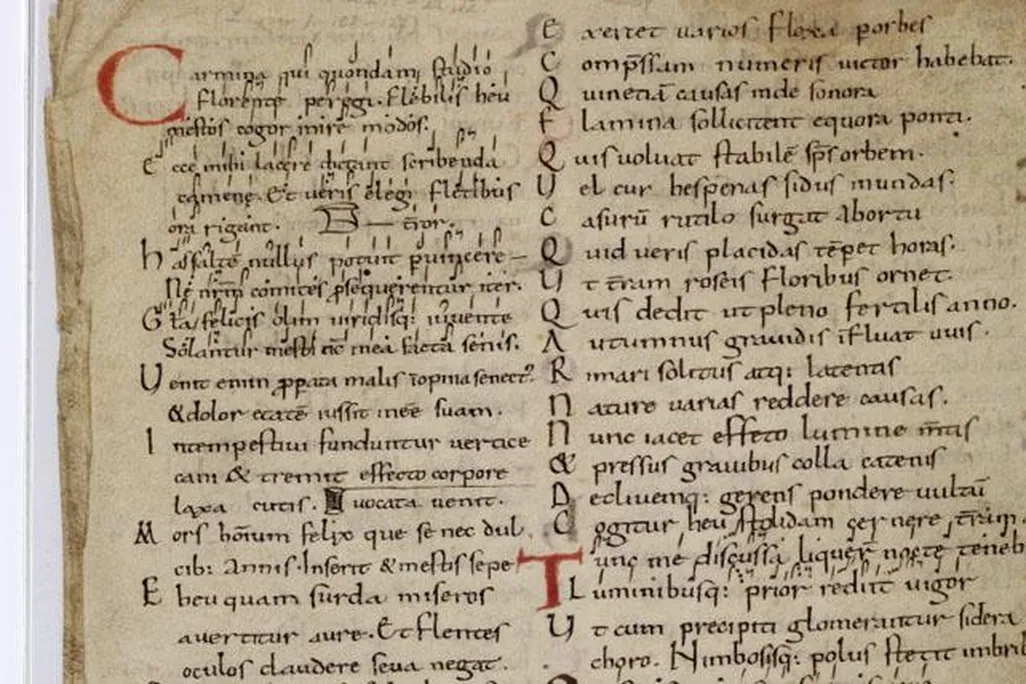 Carmina qui quondam studio
florente peregi. Flebilis heu
mestos cogor inire modos.
Ecce mihi lacere dictant scribenda
camene. Et ueris elegi fletibus
ora rigant. tror.
has saltē nullus potuit puincere
Ne nrm̄ comites psequerentur iter.
Gła felicis olim uiridisq: iuuente
Solantur mesti nc̄ mea facta senis.
Uenit enim ppata malis īopina senect?
& dolor etatē iussit inēe suam.
Intempestiui funduntur uertice
cani & tremit effecto corpore
laxa cutis. uocata uenit.
Mors hōium felix que se nec dul
cib: Annis. Inserit & mestis sepe
Eheu quam surda miseros
auertitur aure. Et flentes
oculos claudere seua negat.
Exercet uarios flexa porbes
Comp̄ssam numeris uictor habebat.
Quinetiā causas inde sonora
Flamina sollicitent equora ponti.
Quis uoluat stabilē sp̄s orbem.
Uel cur hesperias sidus in undas:
Casurū rutilo surgat Abortu
Quid ueris placidas tēpet horas:
Ut t̄ram roseis floribus ornet.
Quis dedit ut pleno fertilis anno.
Autumnus grauidis īfluat uuis.
Rimari solitus atq: latentis
Nature uarias reddere causas.
Nunc iacet effeto lumine m̄tis
& pressus grauibus colla catenis
Decliuemq: gerens pondere uultū
Cogitur heu stolidam cernere t̄ram.
Tunc me discussa liquer̄ nocte teneb
Luminibusq: prior rediit uigor
Ut cum precipiti glomerantur sidera
choro. Nimbosisq: polus stetit imbrib